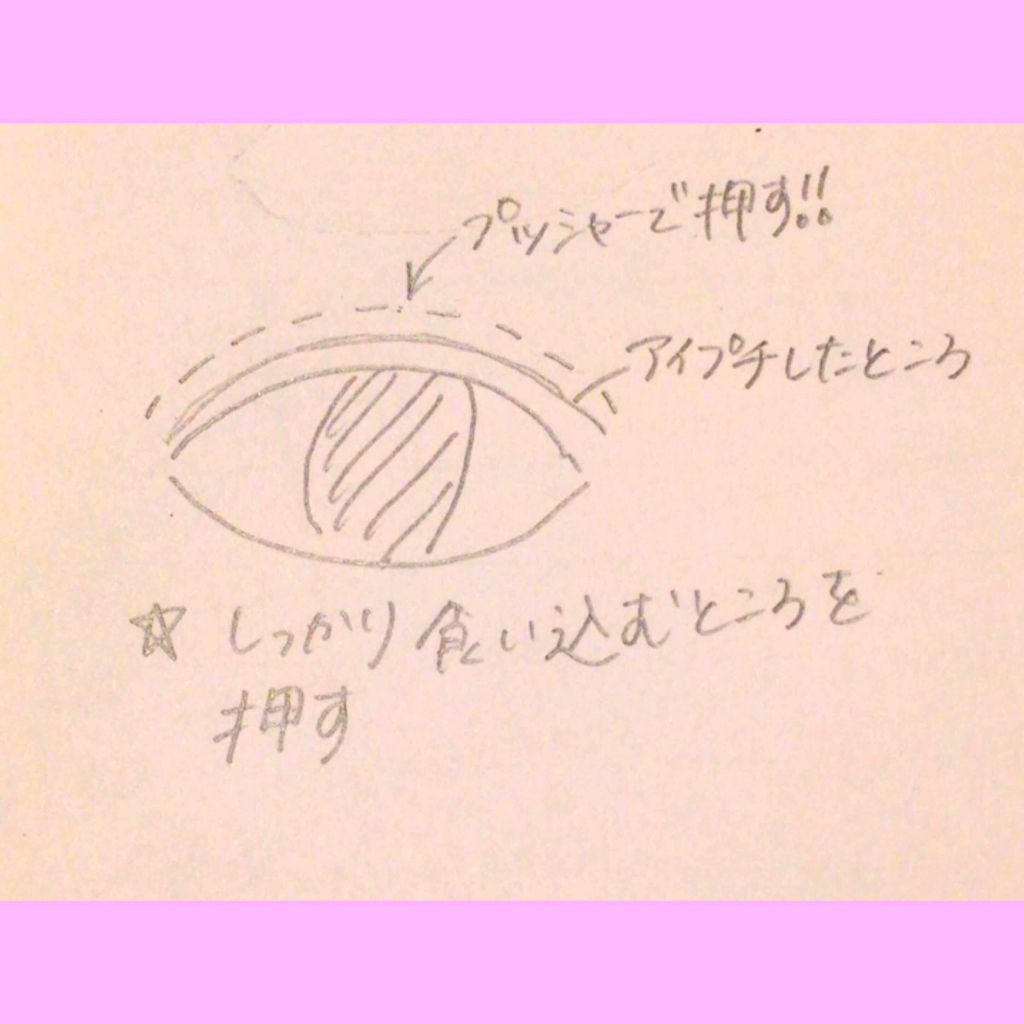 プッシャーで押す!!
アイプチしたところ
☆ しっかり食い込むところを
押す